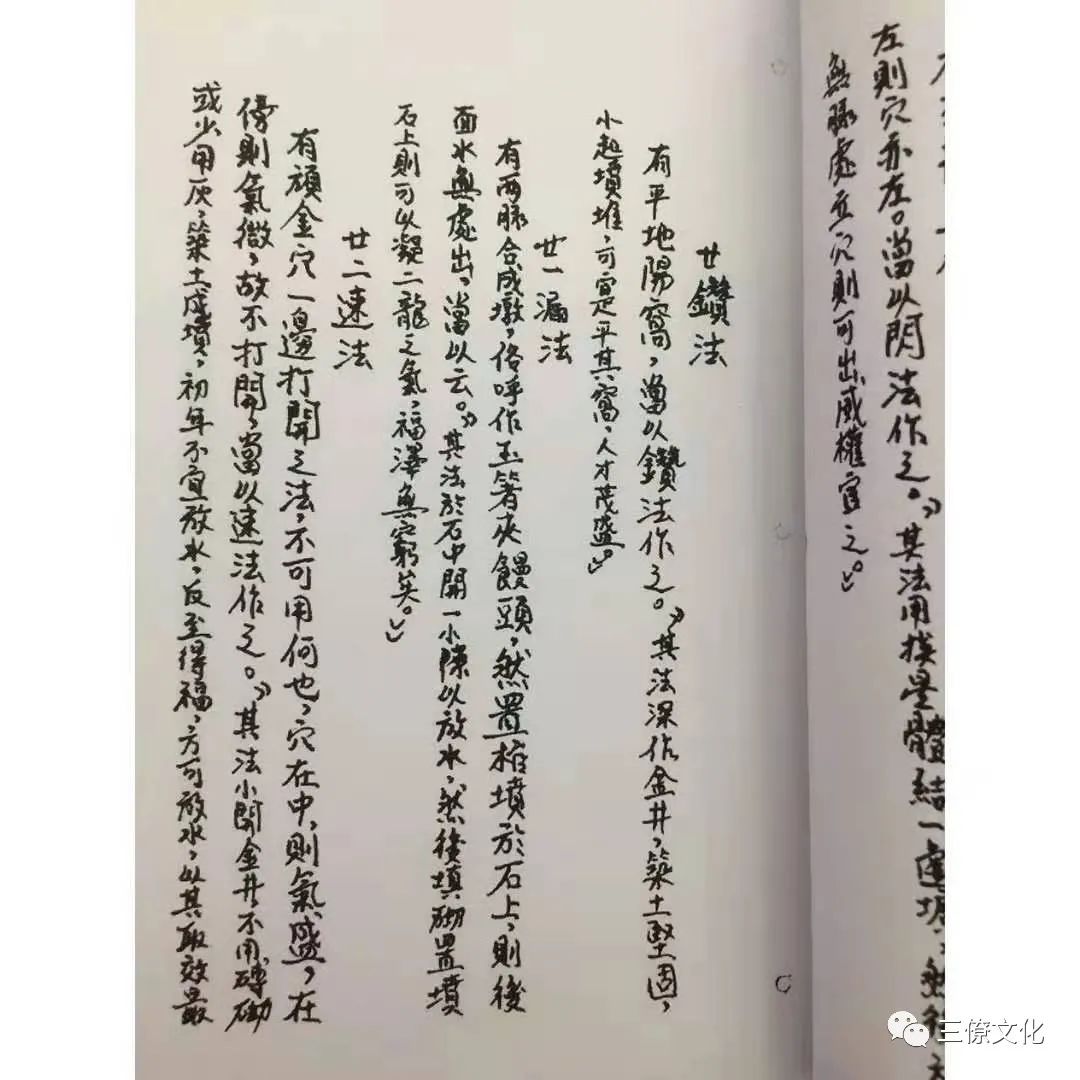 左則穴亦左。當以閃法作之。其法用挨星體結一虛坟，然後
無脉處立穴則可出威權官之。
廿鑽法
有平地陽窩，當以鑽法作之。其法深作金井，築土堅固，
小起墳堆，可宜平其窩，人才茂盛。
廿一漏法
有兩脉合成墩，俗呼作玉箸夾饅頭，然置棺墳於石上，則後
面水無處出，當以云。其法於石中開一小隙以放水，然後填砌置墳
石上則可以凝二龍之氣，福澤無窮矣。
廿二速法
有頑金穴一邊打開之法，不可用何也，穴在中，則氣盛，在
傍則氣微，故不打開，當以速法作之。其法小開金井不用磚砌
或少用灰，築土成墳，初年不宜放水，反至得福，方可放水，以其取效最
三僚文化